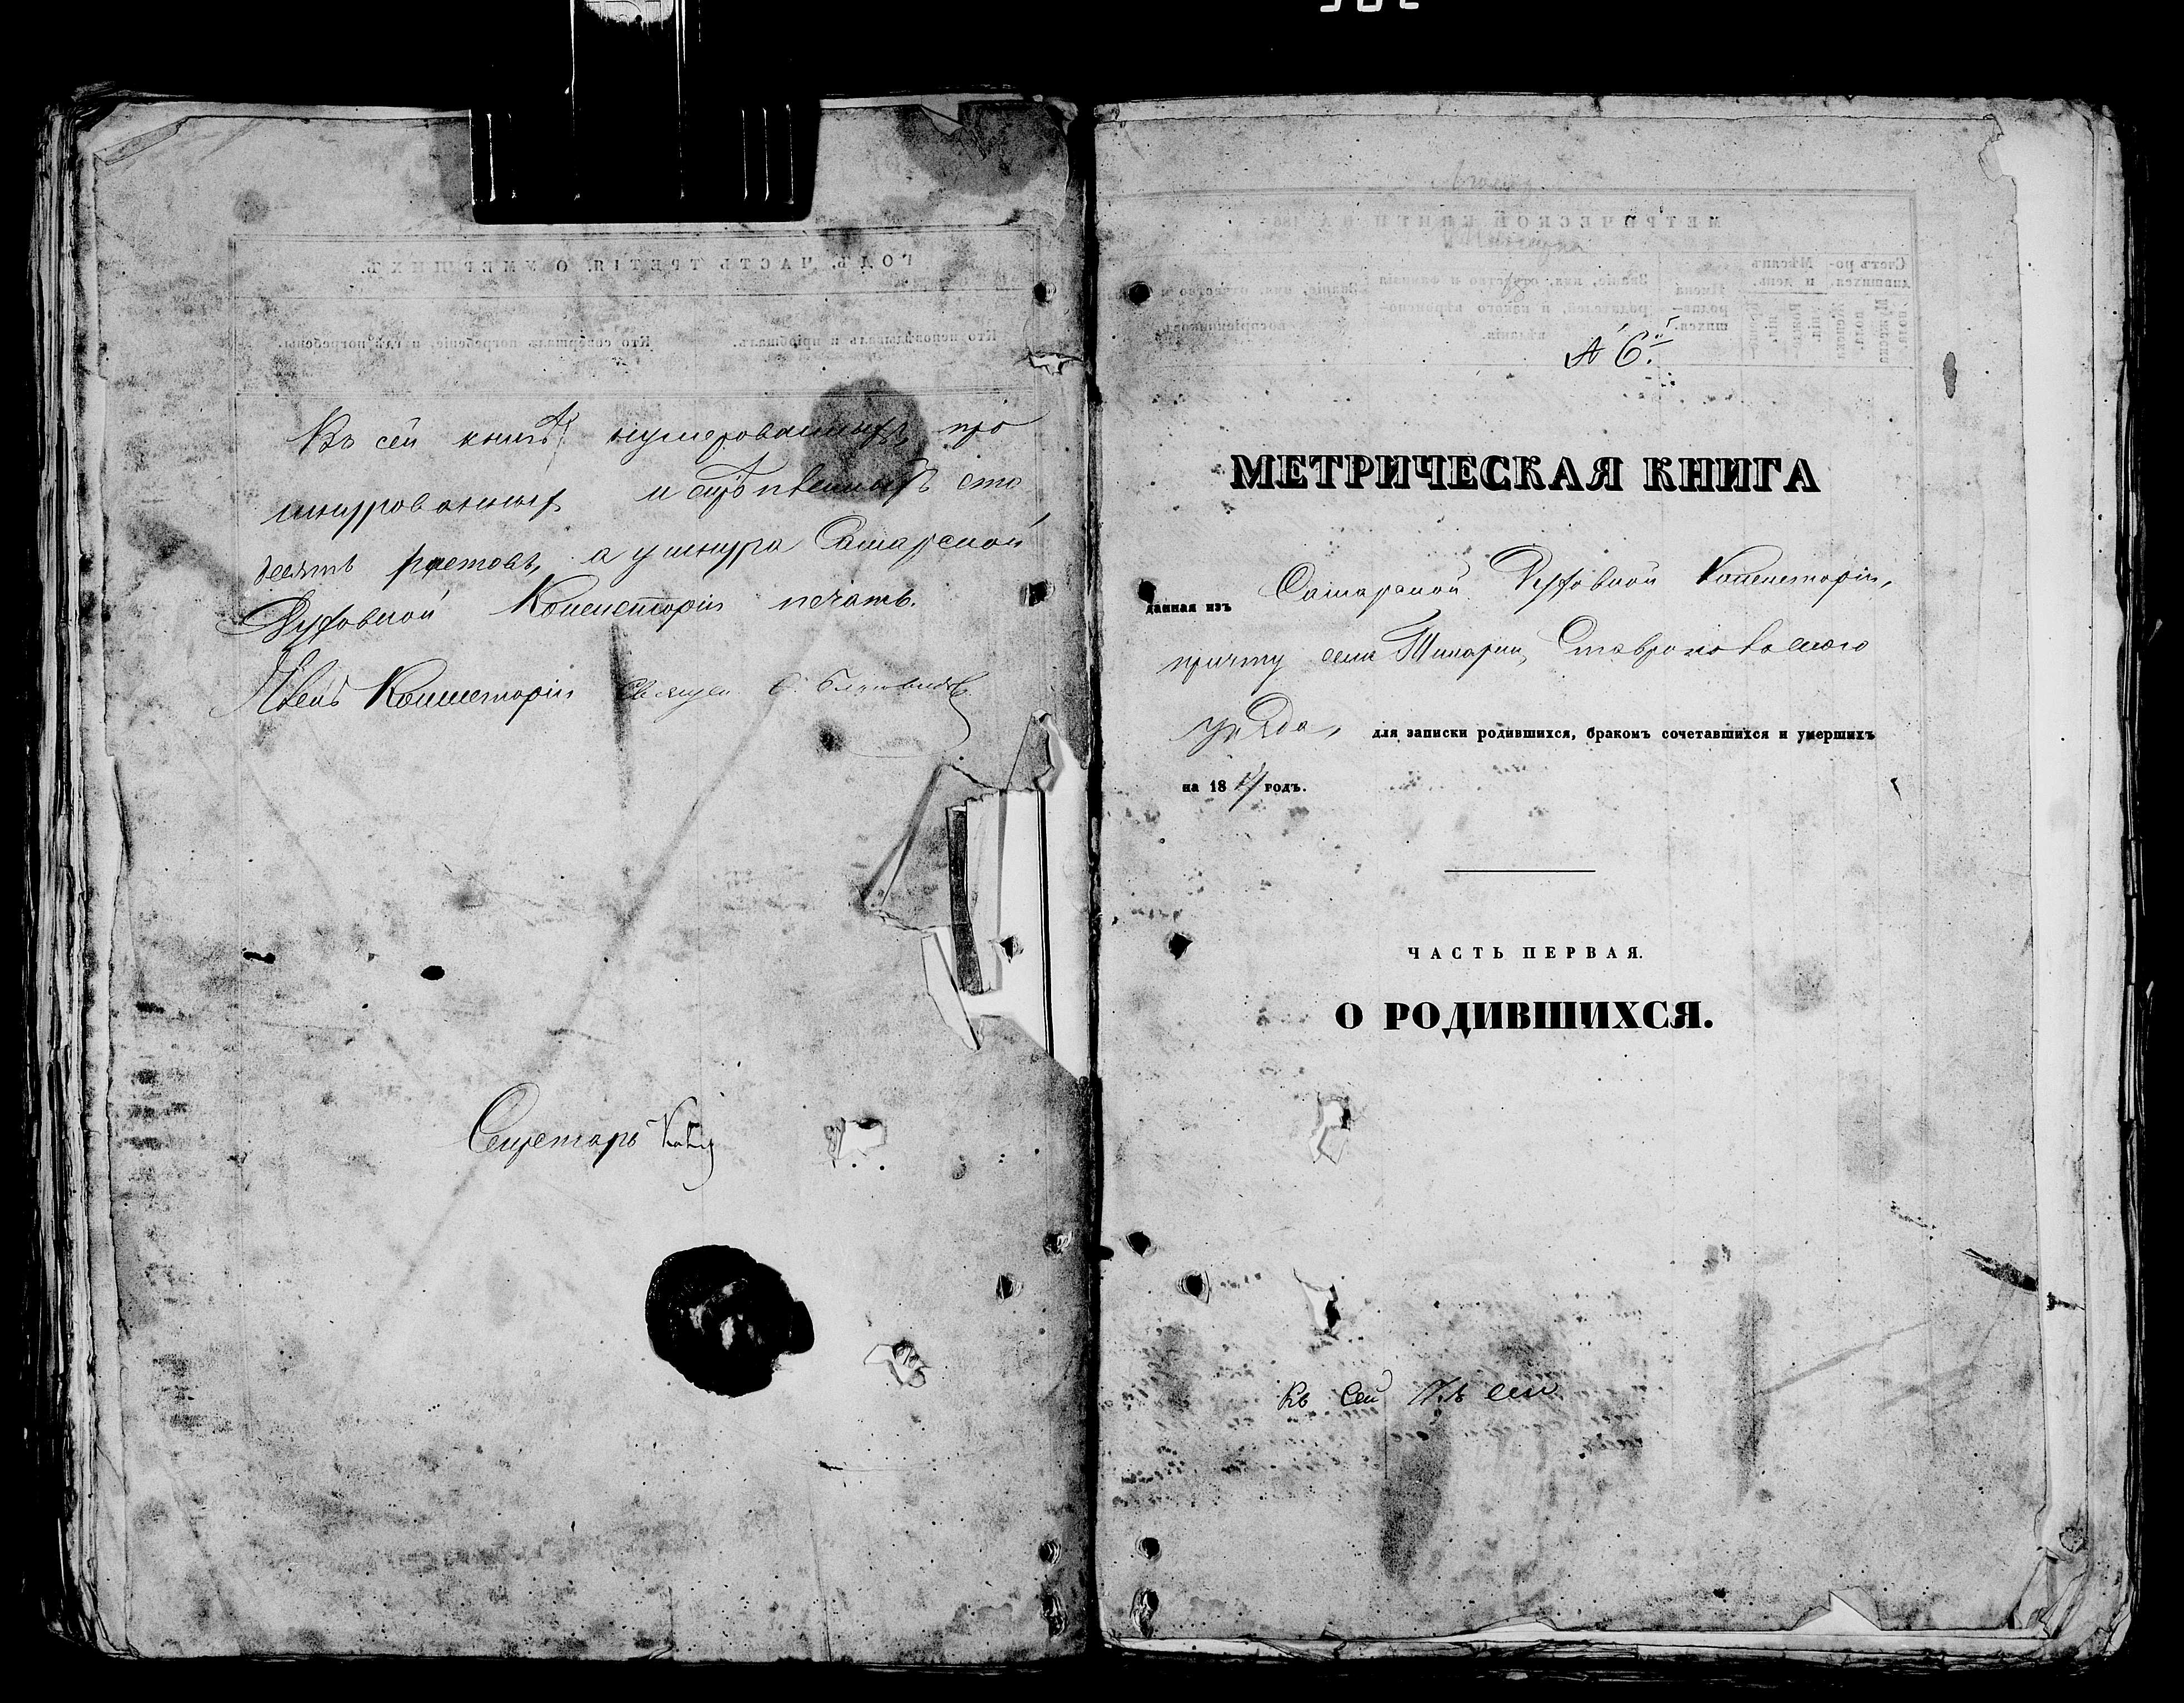 Въ сей книгѣ нумерованныхъ, про
шнурованныхъ и скрѣпленныхъ сто
десять листовъ, а у шнура Самарской
Духовной Консисторіи печать.
Членъ Консисторіи Священ
Секретарь
№ 6й
МЕТРИЧЕСКАЯ КНИГА
данная изъ Самарской Духовной Консисторіи,
причту села Ставропольскаго
уѣзда, для записки родившихся, бракомъ сочетавшихся и умершихъ
на 18 годъ.
ЧАСТЬ ПЕРВАЯ.
О РОДИВШИХСЯ.
Въ сей